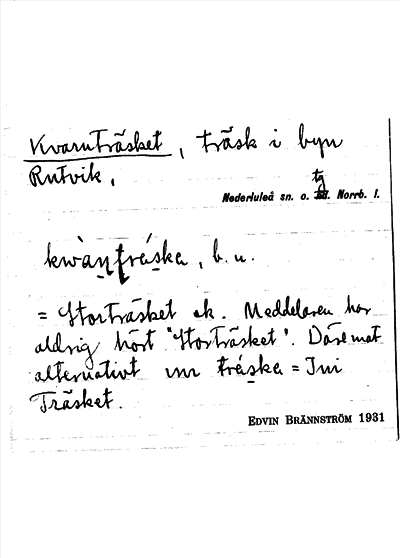 Kvarnträsket, träsk i byn
Rutvik.
Nederluleå sn. o. tg. Norrb. l.
b. u.
= Storträsket ek. Meddelaren har
aldrig hört "Storträsket". Däremot
alternativt = Ini
Träsket.
EDVIN BRÄNNSTRÖM 1931